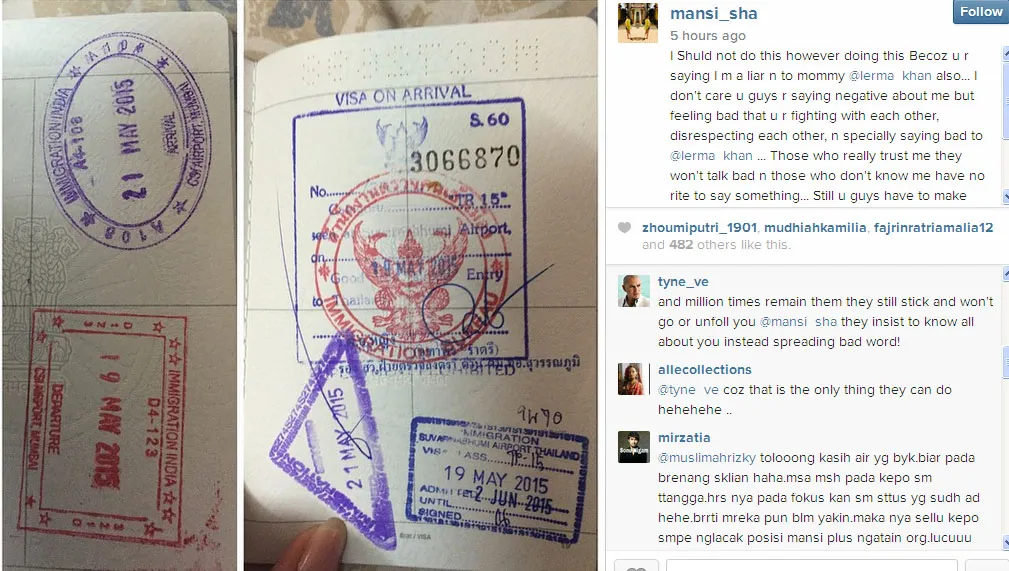 IMMIGRATION INDIA
A4-108
21 MAY 2015
ARRIVAL
CSI AIRPORT, MUMBAI
A108
IMMIGRATION INDIA
D4-123
19 MAY 2015
DEPARTURE
CSI AIRPORT, MUMBAI
D123
VISA ON ARRIVAL
S.60
3066870
No.
TR.15
Airport,
on
19 MAY 2015
Good
Entry
to Thailand
IMMIGRATION BUREAU
21 MAY 2015
IMMIGRATION
SUVARNABHUMI AIRPORT, THAILAND
VISA CLASS
TR-15
19 MAY 2015
ADMITTED
2 JUN 2015
UNTIL
SIGNED
VISA
mansi_sha
Follow
5 hours ago
I Shuld not do this however doing this Becoz u r
saying I m a liar n to mommy @lerma_khan also... I
don't care u guys r saying negative about me but
feeling bad that u r fighting with each other,
disrespecting each other, n specially saying bad to
@lerma_khan ... Those who really trust me they
won't talk bad n those who don't know me have no
rite to say something... Still u guys have to make
zhoumiputri_1901, mudhiahkamilia, fajrinratriamalia12
and 482 others like this.
tyne_ve
and million times remain them they still stick and won't
go or unfoll you @mansi_sha they insist to know all
about you instead spreading bad word!
allecollections
@tyne_ve coz that is the only thing they can do
hehehehe ..
mirzatia
@muslimahrizky tolooong kasih air yg byk.biar pada
brenang sklian haha.msa msh pada kepo sm
ttangga.hrs nya pada fokus kan sm sttus yg sudh ad
hehe.brrti mreka pun blm yakin.maka nya sellu kepo
smpe nglacak posisi mansi plus ngatain org.lucuuu